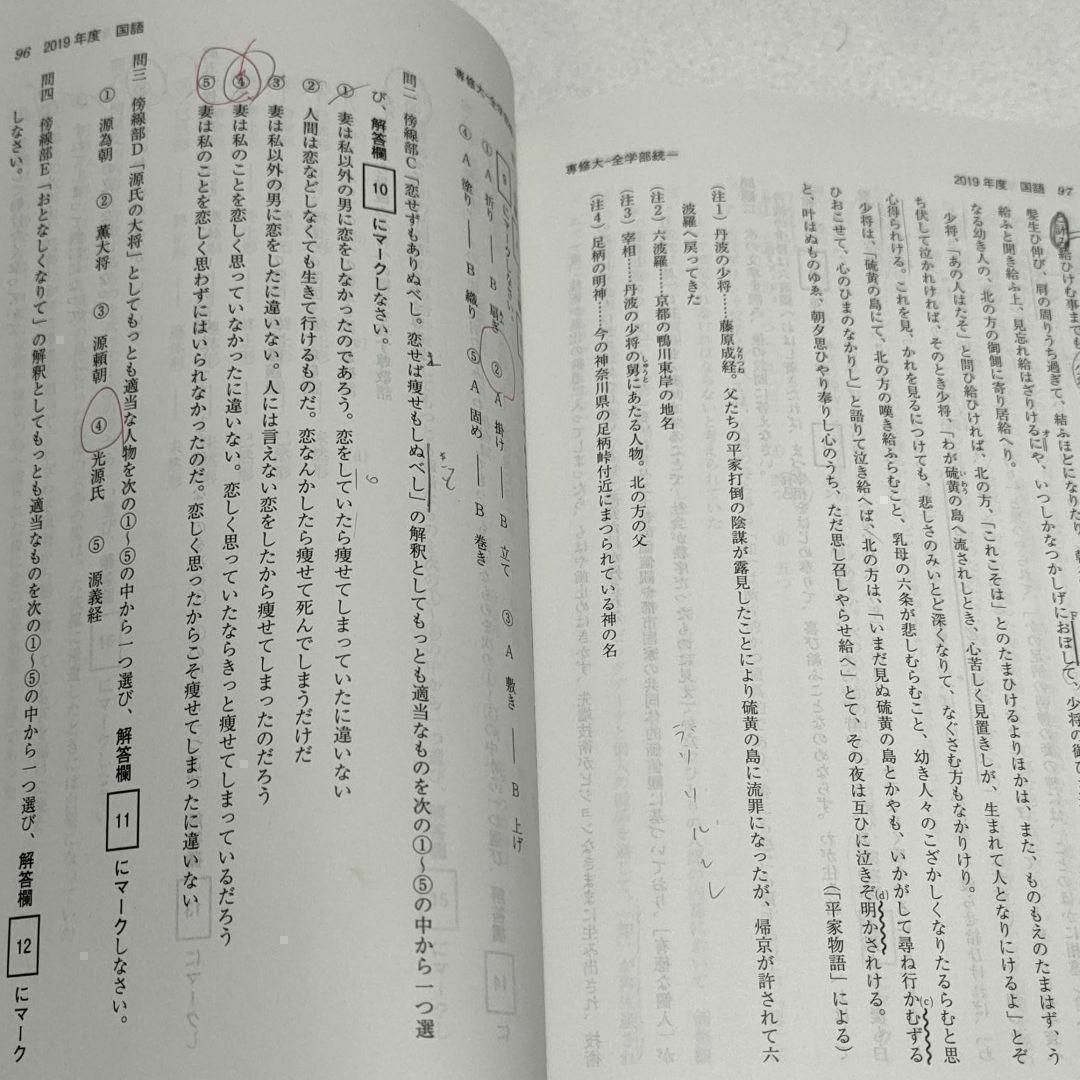 2019年度 国語 97
専修大-全学部統一
髪生ひ伸び、肩の周りうち過ぎて、結ふほどになりたり。
給ふと聞き給ふ上、見忘れ給はざりけるにや、いつしかなつかしげにおぼして、少将の御ひ
なる幼き人の、北の方の御側に寄り居給へり。
少将、「あの人はたそ」と問ひ給ひければ、北の方、「これこそは」とのたまひけるよりほかは、また、ものもえのたまはず、う
ち伏して泣かれければ、そのとき少将、「わが硫黄の島へ流されしとき、心苦しく見置きしが、生まれて人となりにけるよ」とぞ
心得られける。これを見、かれを見るにつけても、悲しさのみいとど深くなりて、なぐさむ方もなかりけり。
少将は、「硫黄の島にて、北の方の嘆き給ふらむこと、乳母の六条が悲しむらむこと、幼き人々のこざかしくなりたるらむと思
ひおこせて、心のひまのなかりし」と語りて泣き給へば、北の方は、「いまだ見ぬ硫黄の島とかやも、いかがして尋ね行かむずる
と、叶はぬものゆゑ、朝夕思ひやり奉りし心のうち、ただ思し召しやらせ給へ」とて、その夜は互ひに泣きぞ明かされける。
(c)
(d)
(『平家物語』による)
(注1) 丹波の少将……藤原成経。父たちの平家打倒の陰謀が露見したことにより硫黄の島に流罪になったが、帰京が許されて六
波羅へ戻ってきた
(注2) 六波羅……京都の鴨川東岸の地名
(注3) 宰相……丹波の少将の舅にあたる人物。北の方の父
(注4) 足柄の明神……今の神奈川県の足柄峠付近にまつられている神の名
96 2019年度 国語
専修大-全学部統一
9 にマークしなさい。
① A 折り――B 扇ぎ ② A 掛け――B 立て ③ A 敷き――B 上げ
④ A 塗り――B 織り ⑤ A 固め――B 巻き
問二 傍線部C「恋せずもありぬべし。恋せば痩せもしぬべし」の解釈としてもっとも適当なものを次の①~⑤の中から一つ選
び、解答欄 10 にマークしなさい。
① 妻は私以外の男に恋をしなかったのであろう。恋をしていたら痩せてしまっていたに違いない
② 人間は恋などしなくても生きて行けるものだ。恋なんかしたら痩せて死んでしまうだけだ
③ 妻は私以外の男に恋をしたに違いない。人には言えない恋をしたから痩せてしまったのだろう
④ 妻は私のことを恋しく思っていなかったに違いない。恋しく思っていたならきっと痩せてしまっているだろう
⑤ 妻は私のことを恋しく思わずにはいられなかったのだ。恋しく思ったからこそ痩せてしまったに違いない
問三 傍線部D「源氏の大将」としてもっとも適当な人物を次の①~⑤の中から一つ選び、解答欄 11 にマークしなさい。
① 源為朝 ② 薫大将 ③ 源頼朝 ④ 光源氏 ⑤ 源義経
問四 傍線部E「おとなしくなりて」の解釈としてもっとも適当なものを次の①~⑤の中から一つ選び、解答欄 12 にマーク
しなさい。